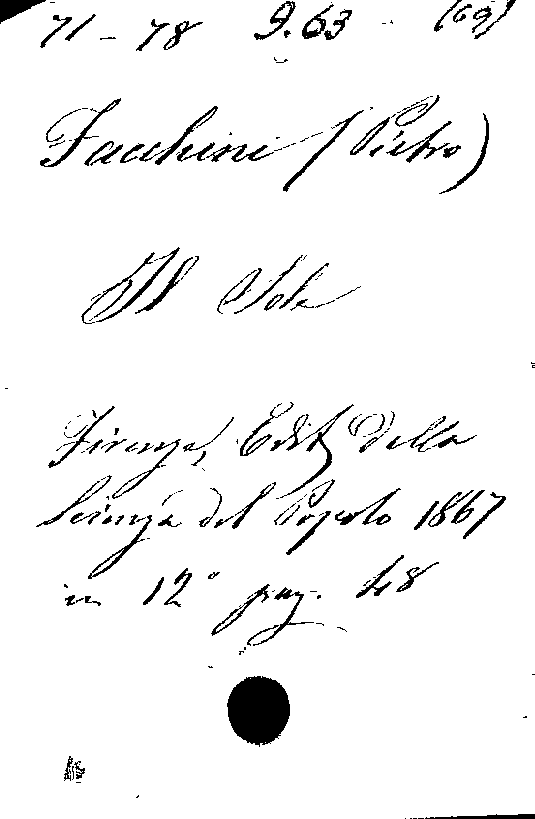 71 - 78 9.63 - (69)
Facchini (Pietro)
Il Sole
Firenze, Edit. della
Scienza del Popolo 1867
in 12° pag. 48